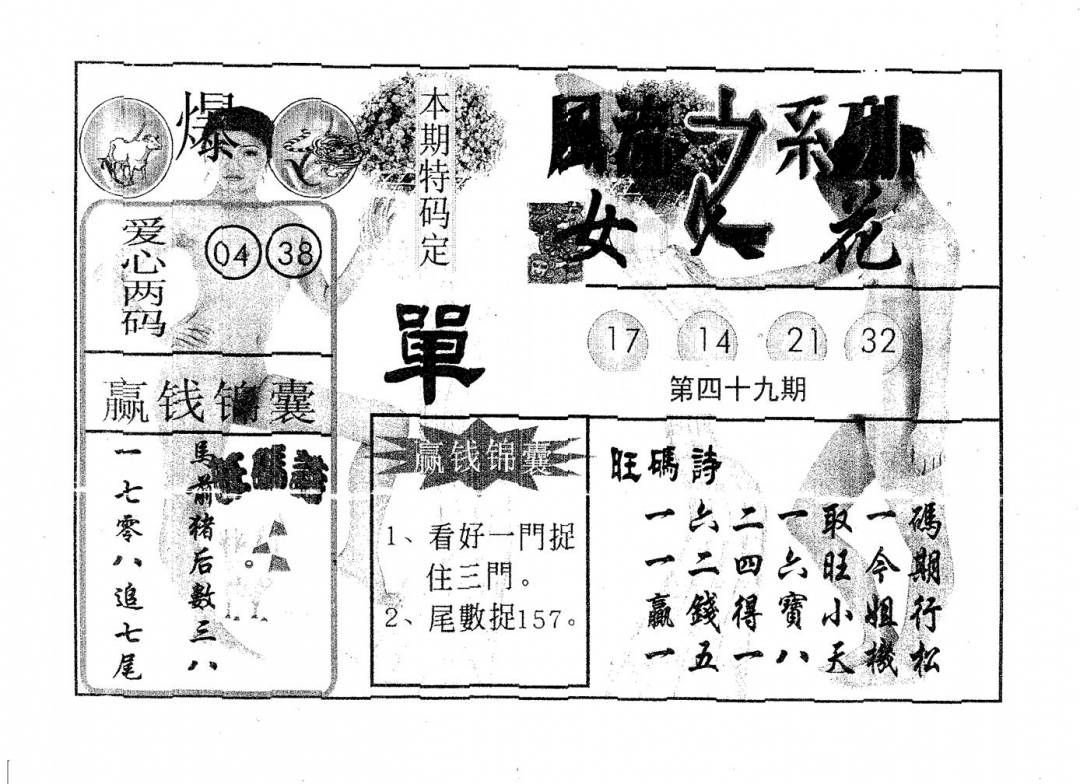 爆
爱心两码
04 38
赢钱锦囊
馬前猪后數三八
一七零八追七尾
本期特码定
單
赢钱锦囊
1、看好一門捉
住三門。
2、尾數捉157。
风流之系列
女人花
17 14 21 32
第四十九期
旺碼詩
一六二一取一碼
一二四六旺今期
赢錢得寶小姐行
一五一八天機松